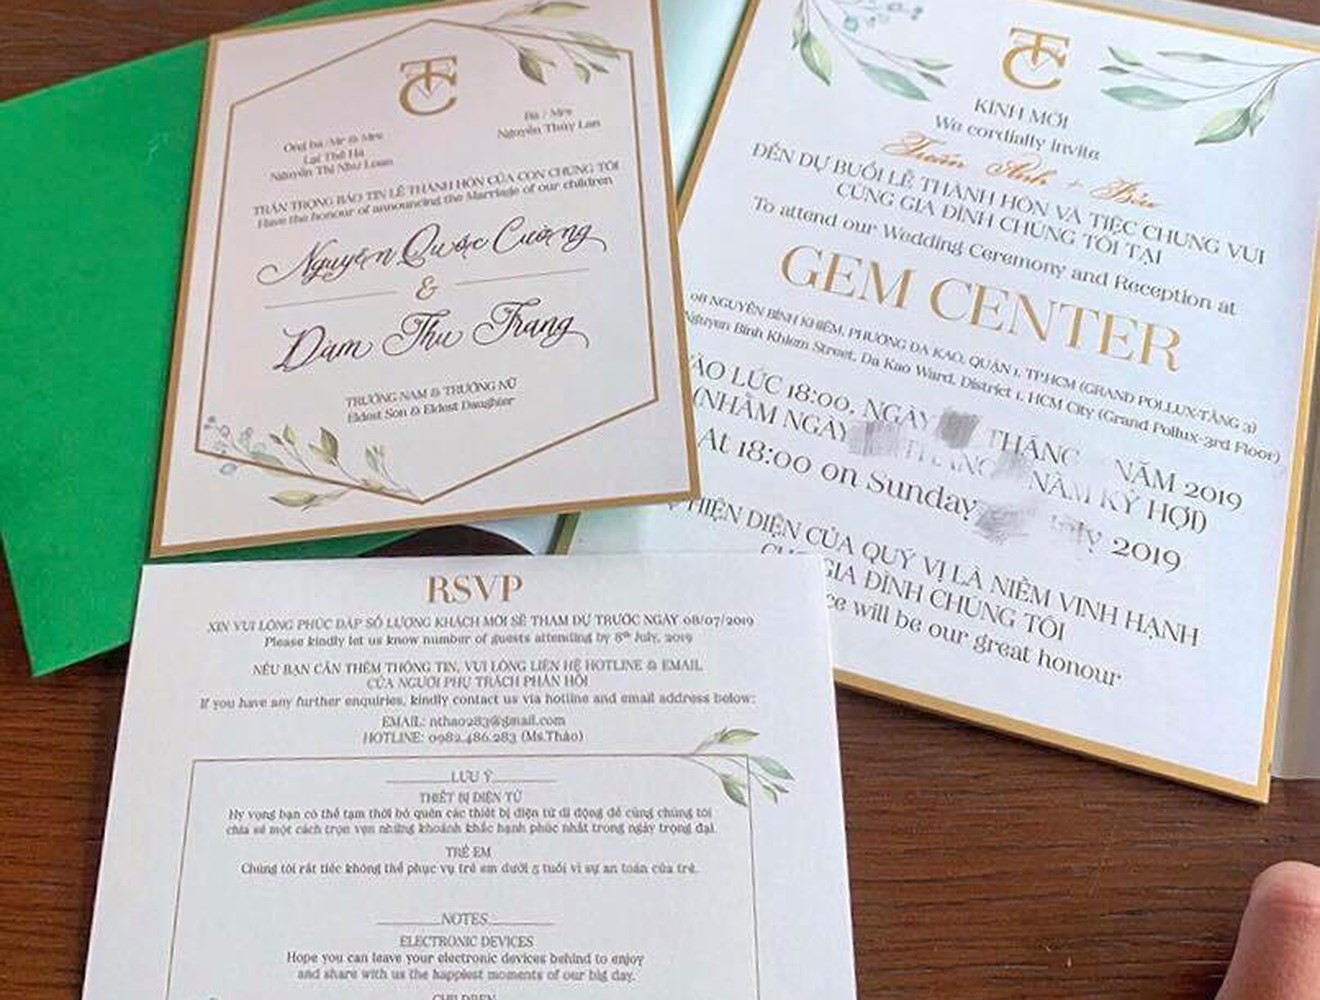 TC
Ông bà/Mr & Mrs
Lại Thế Hà
Nguyễn Thị Như Loan
Bà / Mrs
Nguyễn Thúy Lan
TRÂN TRỌNG BÁO TIN LỄ THÀNH HÔN CỦA CON CHÚNG TÔI
Have the honour of announcing the Marriage of our children
Nguyễn Quốc Cường
&
Đàm Thu Trang
TRƯỞNG NAM & TRƯỞNG NỮ
Eldest Son & Eldest Daughter
TC
KÍNH MỜI
We cordially invite
ĐẾN DỰ BUỔI LỄ THÀNH HÔN VÀ TIỆC CHUNG VUI
CÙNG GIA ĐÌNH CHÚNG TÔI TẠI
To attend our Wedding Ceremony and Reception at
GEM CENTER
08 NGUYỄN BỈNH KHIÊM, PHƯỜNG ĐA KAO, QUẬN 1, TP.HCM (GRAND POLLUX-TẦNG 3)
Nguyen Binh Khiem Street, Da Kao Ward, District 1, HCM City (Grand Pollux-3rd Floor)
VÀO LÚC 18:00, NGÀY THÁNG NĂM 2019
(NHẰM NGÀY THÁNG NĂM KỶ HỢI)
At 18:00 on Sunday 2019
HIỆN DIỆN CỦA QUÝ VỊ LÀ NIỀM VINH HẠNH
GIA ĐÌNH CHÚNG TÔI
will be our great honour
RSVP
XIN VUI LÒNG PHÚC ĐÁP SỐ LƯỢNG KHÁCH MỜI SẼ THAM DỰ TRƯỚC NGÀY 08/07/2019
Please kindly let us know number of guests attending by 8th July, 2019
NẾU BẠN CẦN THÊM THÔNG TIN, VUI LÒNG LIÊN HỆ HOTLINE & EMAIL
CỦA NGƯỜI PHỤ TRÁCH PHẢN HỒI
If you have any further enquiries, kindly contact us via hotline and email address below:
EMAIL: nthao283@gmail.com
HOTLINE: 0982.486.283 (Ms.Thảo)
LƯU Ý
THIẾT BỊ ĐIỆN TỬ
Hy vọng bạn có thể tạm thời bỏ quên các thiết bị điện tử di động để cùng chúng tôi
chia sẻ một cách trọn vẹn những khoảnh khắc hạnh phúc nhất trong ngày trọng đại.
TRẺ EM
Chúng tôi rất tiếc không thể phục vụ trẻ em dưới 5 tuổi vì sự an toàn của trẻ.
NOTES
ELECTRONIC DEVICES
Hope you can leave your electronic devices behind to enjoy
and share with us the happiest moments of our big day.
CHILDREN